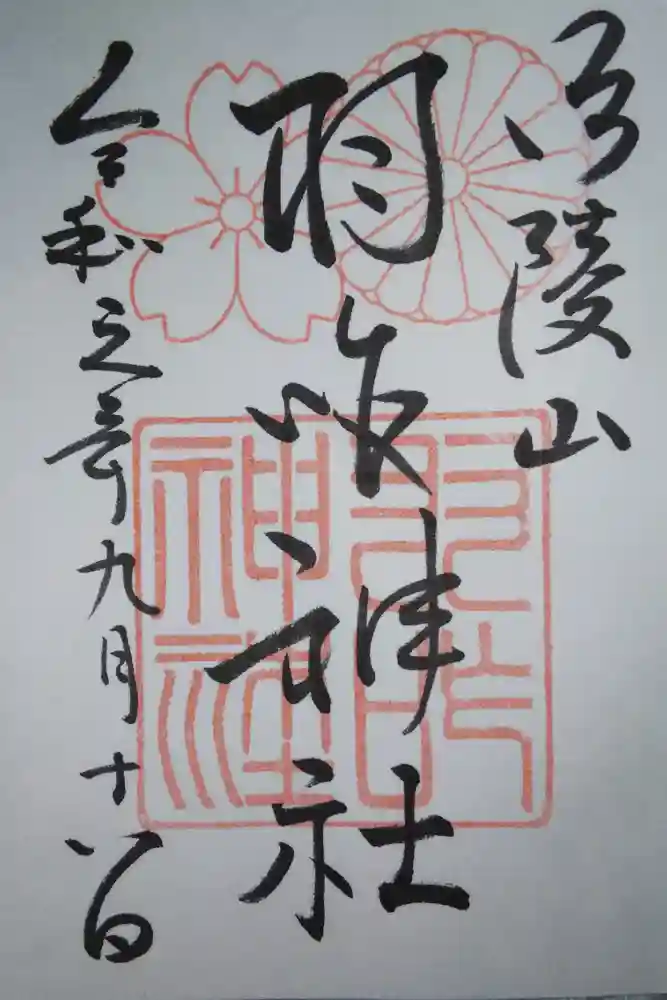 御陵山
羽咋神社
令和元年九月十八日
羽咋
神社